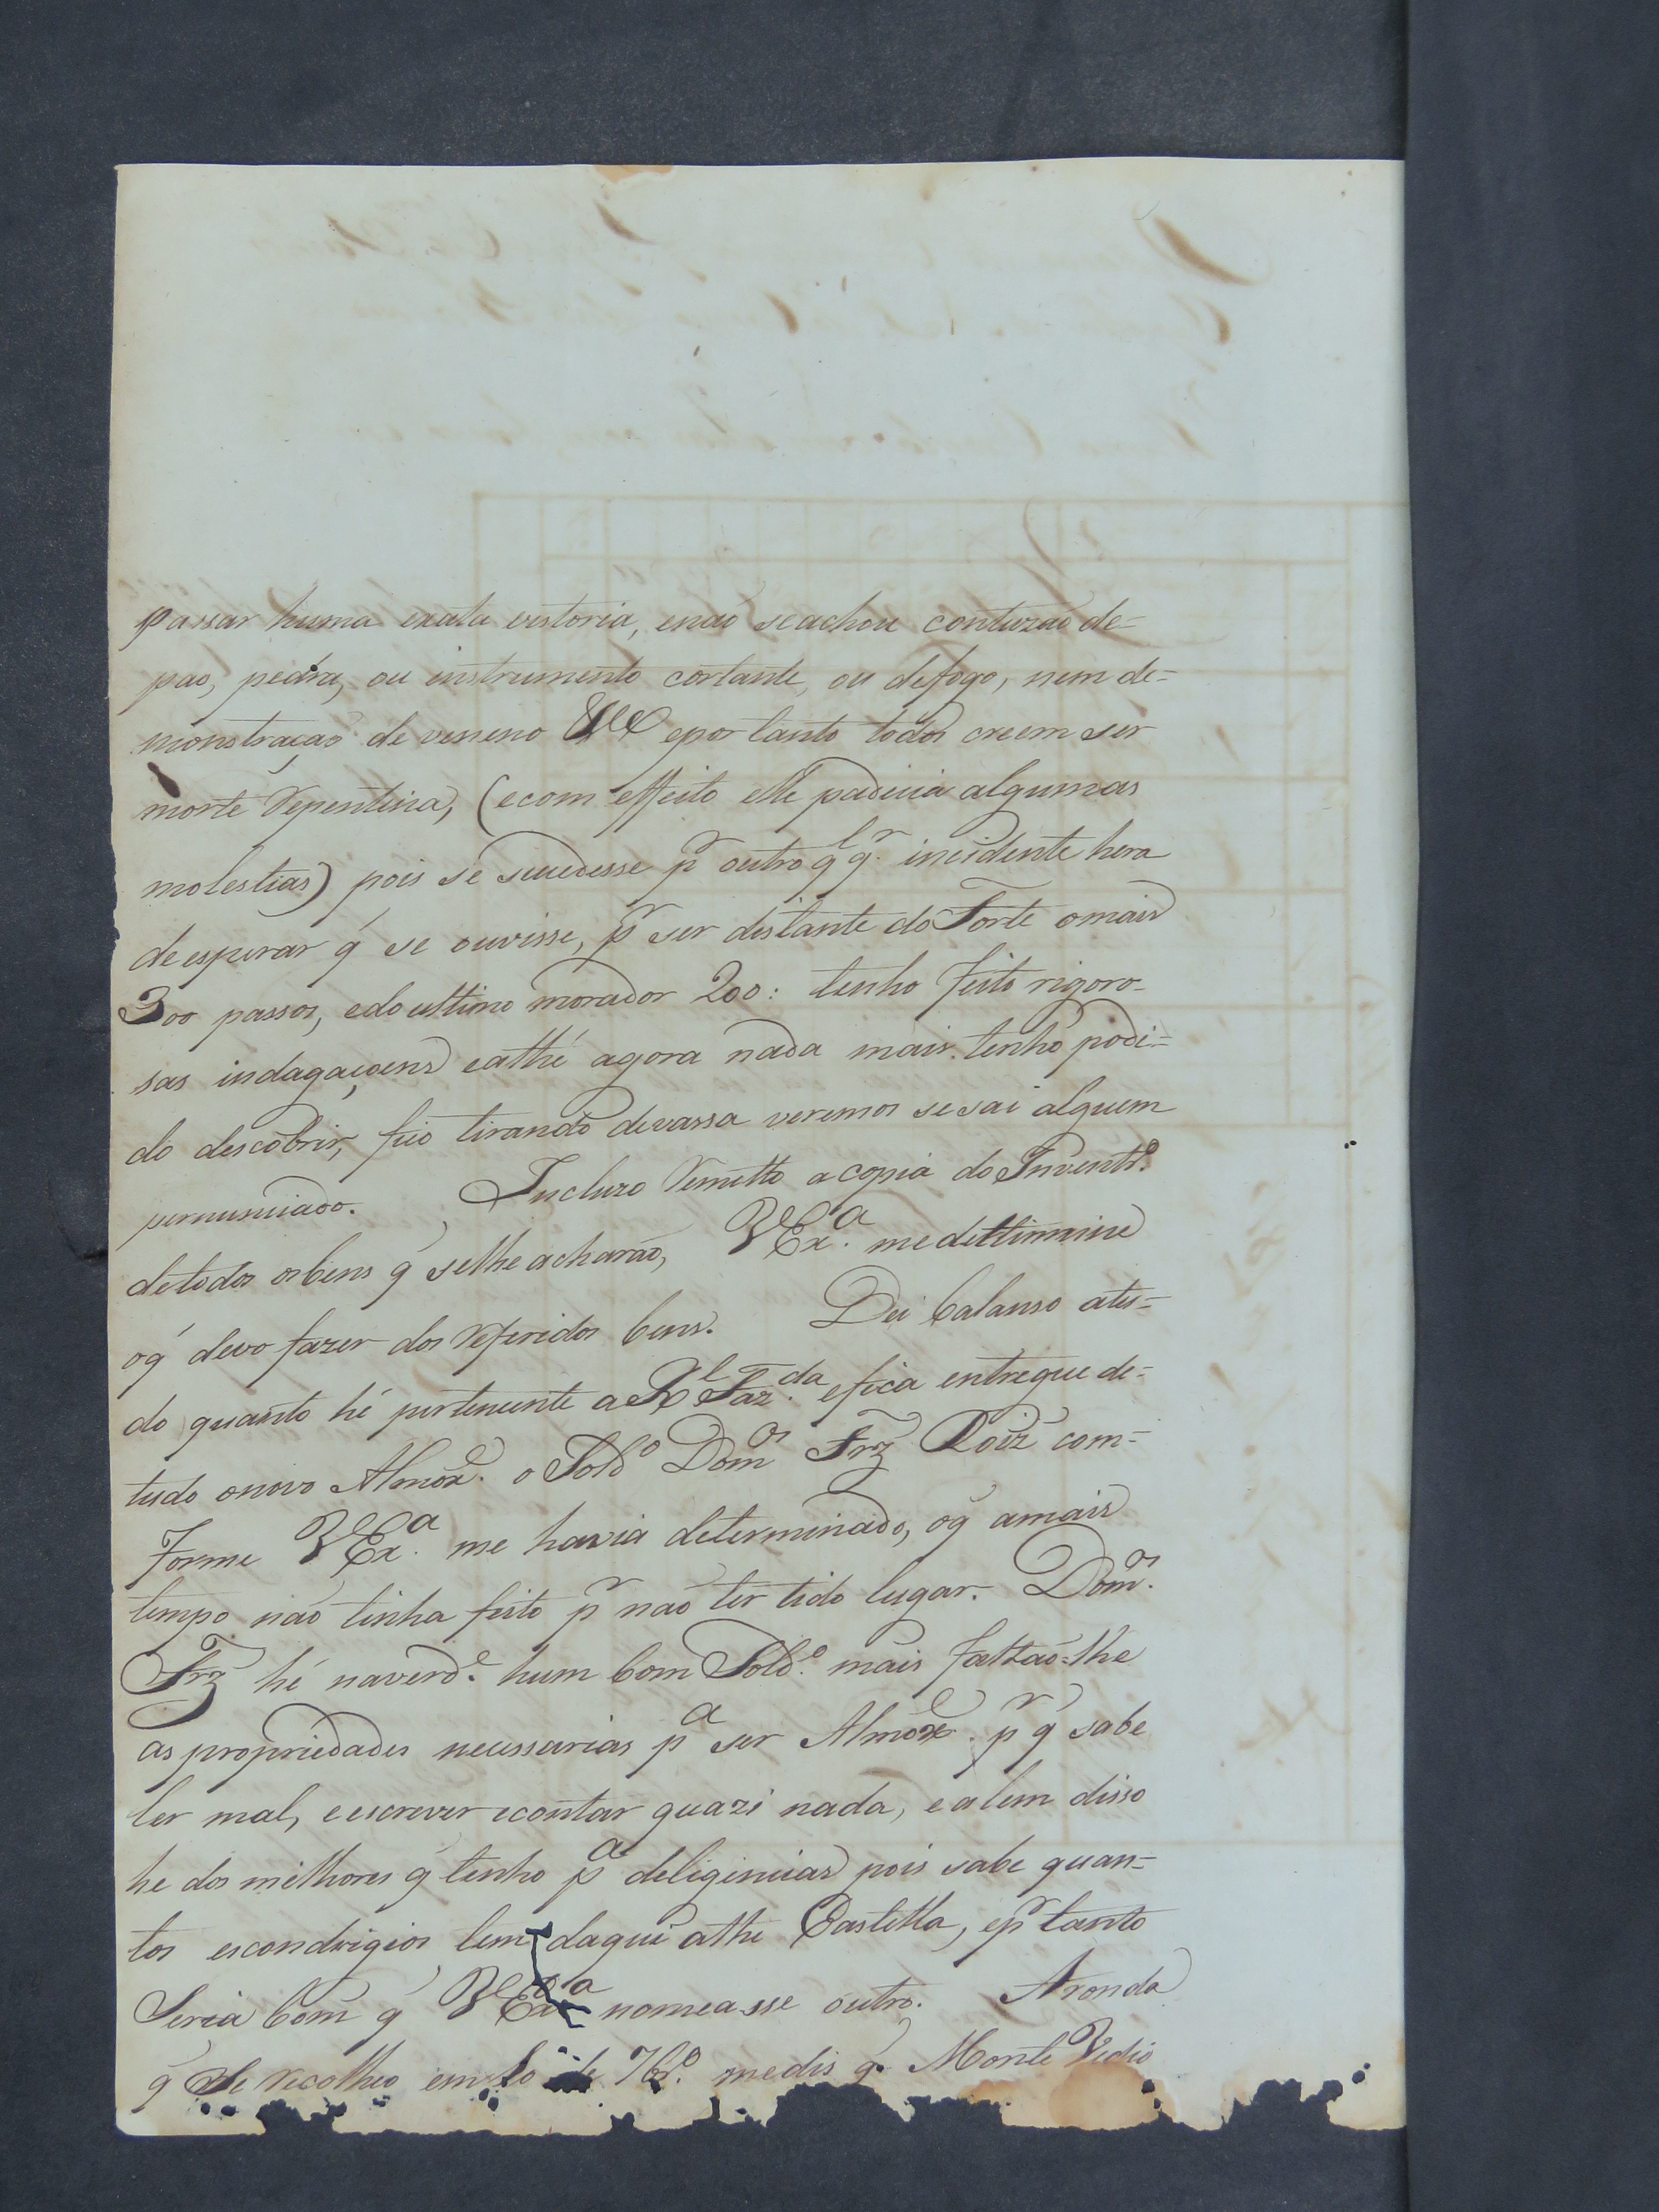 passar huma exata vestoria, enaõ seachou contuzaõ de=
pao, pedra, ou instrumento cortante, ou defogo, nem de=
monstraçaõ de veneno &&ª eportanto todos creem ser
morte Repentina, (ecom effeito elle padicia algumas
molestias) pois se sucedesse pr outro qlqr. incidente hera
deesperar q̃ se ouvisse, pr ser distante do Forte omais
300 passos, edoultimo morador 200: tenho feito rigoro-
sas indagaçoens eathé agora nada mais tenho podi=
do descobrir, fico tirando devassa veremos sesai alguem
pernunciado. Incluzo Remetto acopia do Inventro.
detodos osbens q̃ selhe acharaõ, VExa. medettirmine
oq̃ devo fazer dos Referidos bens. Dei balanso atu=
do quanto hé pertencente a Rl Fazda. efica entregue de=
tudo onovo Almoxe. o Soldo Domos Frz Roiz com=
forme VExa. me havia determinado, oq̃ amais
tempo naõ tinha feito pr naõ ter tido lugar. Domos.
Frz hé naverde. hum bom Soldo. mais faltaõ-lhe
as propriedades necessarias pa ser Almoxe. pr q̃ sabe
ler mal, eescrever econtar quazi nada, ealem disso
he dos milhores q̃ tenho pa deligincias pois sabe quan=
tos escondrigios tem daqui athe Castilla, epr tanto
Seria bom q̃ VExa nomeasse outro. Aronda
q̃ Se Recolheo em 1o de 7bro. medis q̃ Monte Vedio